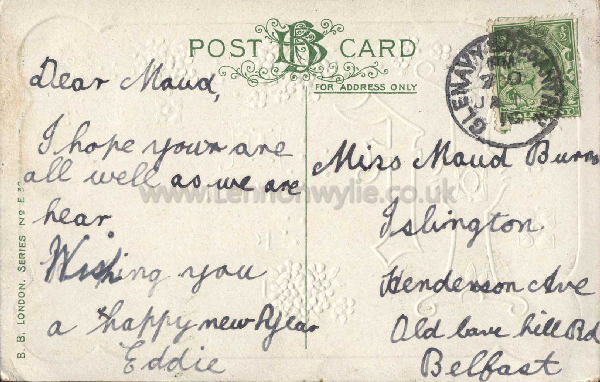 POST CARD
BB
FOR ADDRESS ONLY
Dear Maud,
I hope your are
all well as we are
hear
Wishing you
a happy new Year
Eddie
Miss Maud Burns
Islington
Henderson Ave
Old Cave hill Rd
Belfast
B. B. LONDON. SERIES No E
www.Lennonwylie.co.uk
GLENAVY
JA